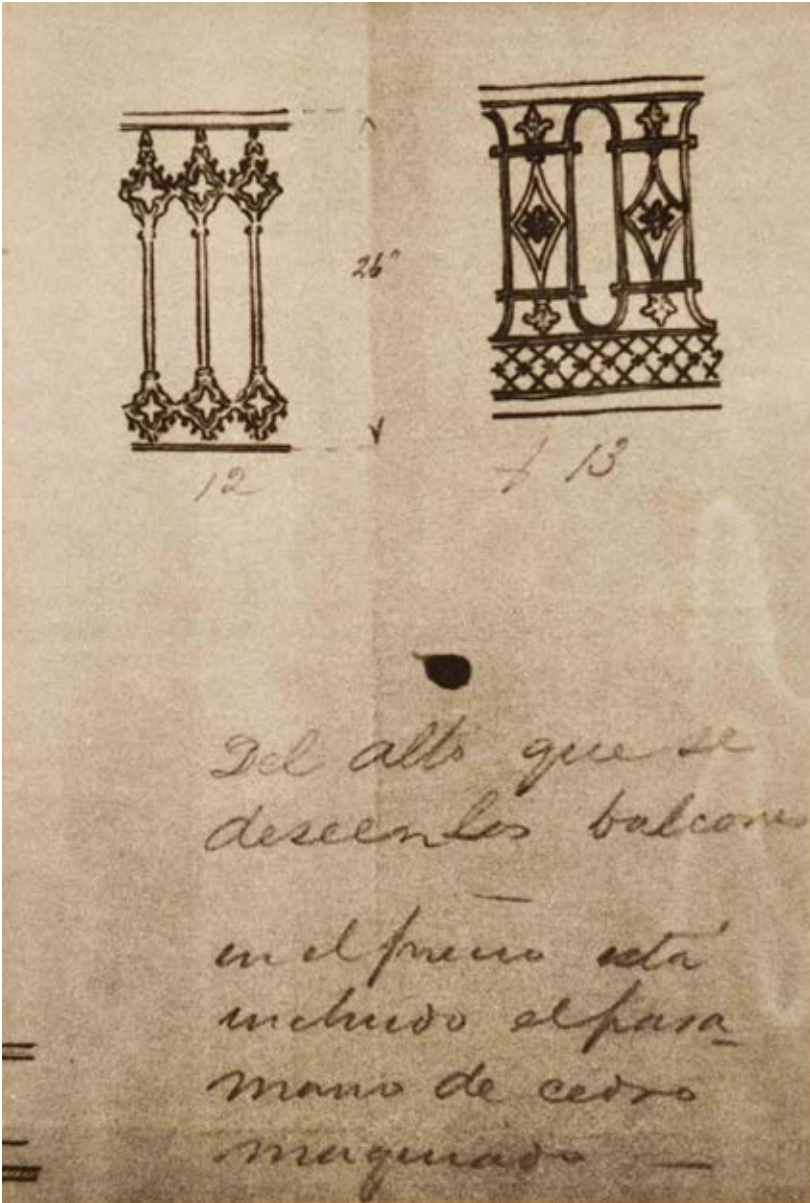 26"
12
13
Del alto que se
deseen los balcones
en el precio está
incluido el pasa-
mano de cedro
maquinado —